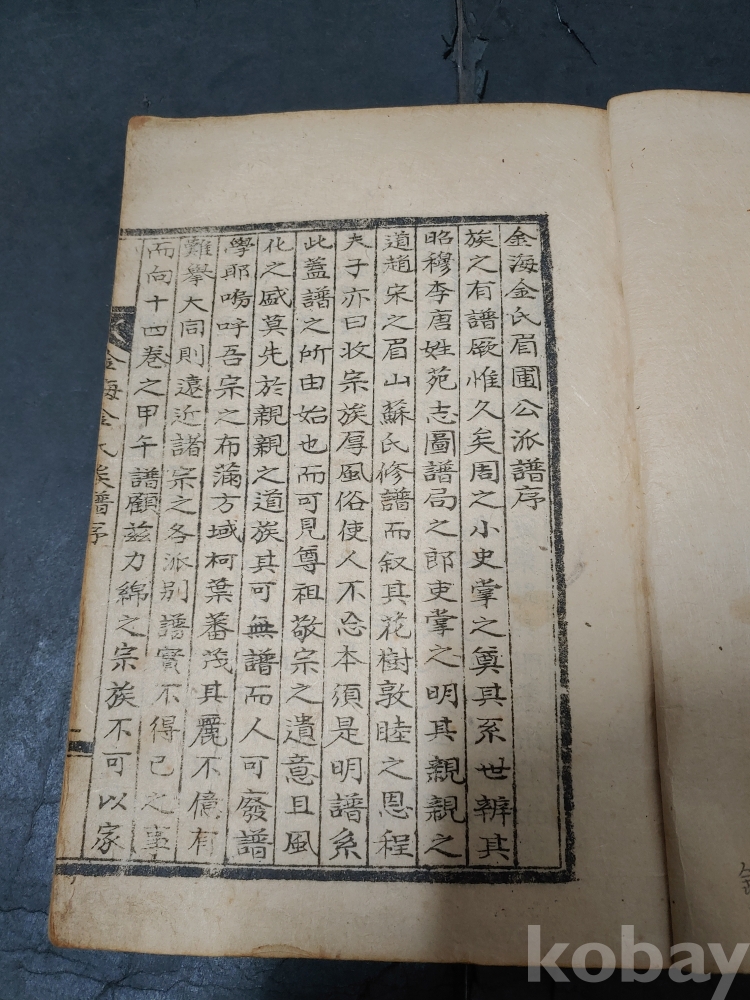 金海金氏眉圃公派譜序
族之有譜厥惟久矣周之小史掌之奠其系世辨其
昭穆李唐姓苑志圖譜局之郎吏掌之明其親親之
道趙宋之眉山蘇氏修譜而叙其花樹敦睦之恩程
夫子亦曰收宗族厚風俗使人不忘本須是明譜系
此蓋譜之所由始也而可見尊祖敬宗之遺意且風
化之盛莫先於親親之道族其可無譜而人可廢譜
學耶嗚呼吾宗之布滿方域柯葉蕃茂其麗不億有
難擧大同則遠近諸宗之各派別譜實不得已之事
而向十四卷之甲午譜顧玆力綿之宗族不可以家
金海金氏族譜序
一
kobay